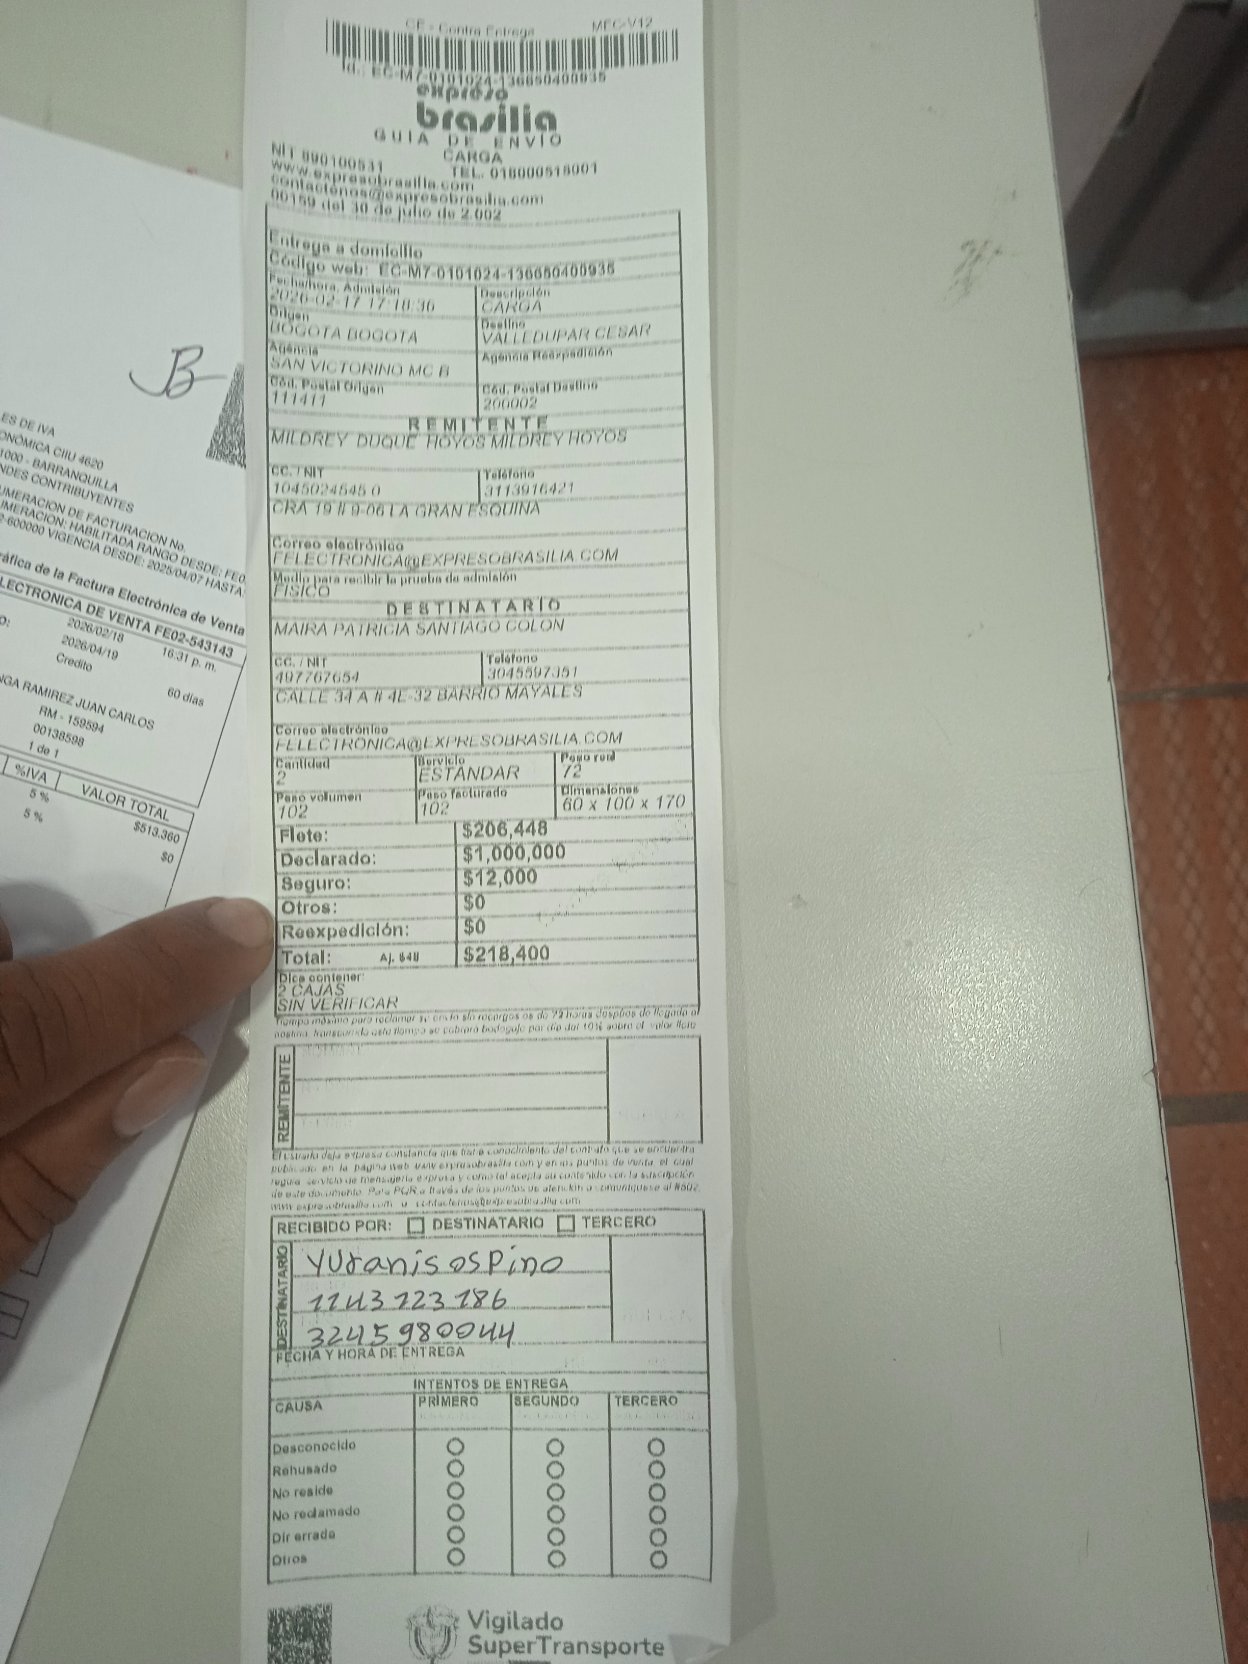 CE - Contra Entrega MEC-V12
Id.: EC-M7-0101024-136650400935
expreso
brasilia
GUIA DE ENVIO
CARGA
NIT 890100531 TEL. 018000518001
www.expresobrasilia.com
contactenos@expresobrasilia.com
00159 del 30 de julio de 2.002
Entrega a domicilio
Código web: EC-M7-0101024-136650400935
Fecha/hora. Admisión Descripción
2026-02-17 17:18:36 CARGA
Origen Destino
BOGOTA BOGOTA VALLEDUPAR CESAR
Agencia Agencia Reexpedición
SAN VICTORINO MC B
Cód. Postal Origen Cód. Postal Destino
111411 200002
REMITENTE
MILDREY DUQUE HOYOS MILDREY HOYOS
CC. / NIT Teléfono
1045024545 0 3113916421
CRA 19 # 9-06 LA GRAN ESQUINA
Correo electrónico
FELECTRONICA@EXPRESOBRASILIA.COM
Medio para recibir la prueba de admisión
FISICO
DESTINATARIO
MAIRA PATRICIA SANTIAGO COLON
CC. / NIT Teléfono
497767654 3045597351
CALLE 34 A # 4E-32 BARRIO MAYALES
Correo electrónico
FELECTRONICA@EXPRESOBRASILIA.COM
Cantidad Servicio Peso real
2 ESTANDAR 72
Peso volumen Peso facturado Dimensiones
102 102 60 x 100 x 170
Flete: $206,448
Declarado: $1,000,000
Seguro: $12,000
Otros: $0
Reexpedición: $0
Total: Aj. $48 $218,400
Dice contener:
2 CAJAS
SIN VERIFICAR
Tiempo máximo para reclamar su envío sin recargos es de 72 horas después de llegado al
destino, transcurrido este tiempo se cobrará bodegaje por día del 10% sobre el valor flete
REMITENTE
El usuario deja expresa constancia que tuvo conocimiento del contrato que se encuentra
publicado en la página web www.expresobrasilia.com y en los puntos de venta, el cual
regula servicio de mensajería expresa y como tal acepta su contenido con la suscripción
de este documento. Para PQR a través de los puntos de atención o comuníquese al #502,
www.expresobrasilia.com o contactenos@expresobrasilia.com
RECIBIDO POR: DESTINATARIO TERCERO
DESTINATARIO
Yuranis ospino
1143123186
3245980044
FECHA Y HORA DE ENTREGA
INTENTOS DE ENTREGA
CAUSA PRIMERO SEGUNDO TERCERO
Desconocido
Rehusado
No reside
No reclamado
Dir errada
Otros
Vigilado
SuperTransporte
ES DE IVA
ONÓMICA CIIU 4620
1000 - BARRANQUILLA
NDES CONTRIBUYENTES
UMERACION DE FACTURACION No.
UMERACION: HABILITADA RANGO DESDE: FE0
2-600000 VIGENCIA DESDE: 2025/04/07 HASTA
ráfica de la Factura Electrónica de Venta
LECTRONICA DE VENTA FE02-543143
O: 2026/02/18 16:31 p. m.
2026/04/19
Credito 60 días
NGA RAMIREZ JUAN CARLOS
RM - 159594
00138598
1 de 1
%IVA VALOR TOTAL
5 % $513.360
5 % $0